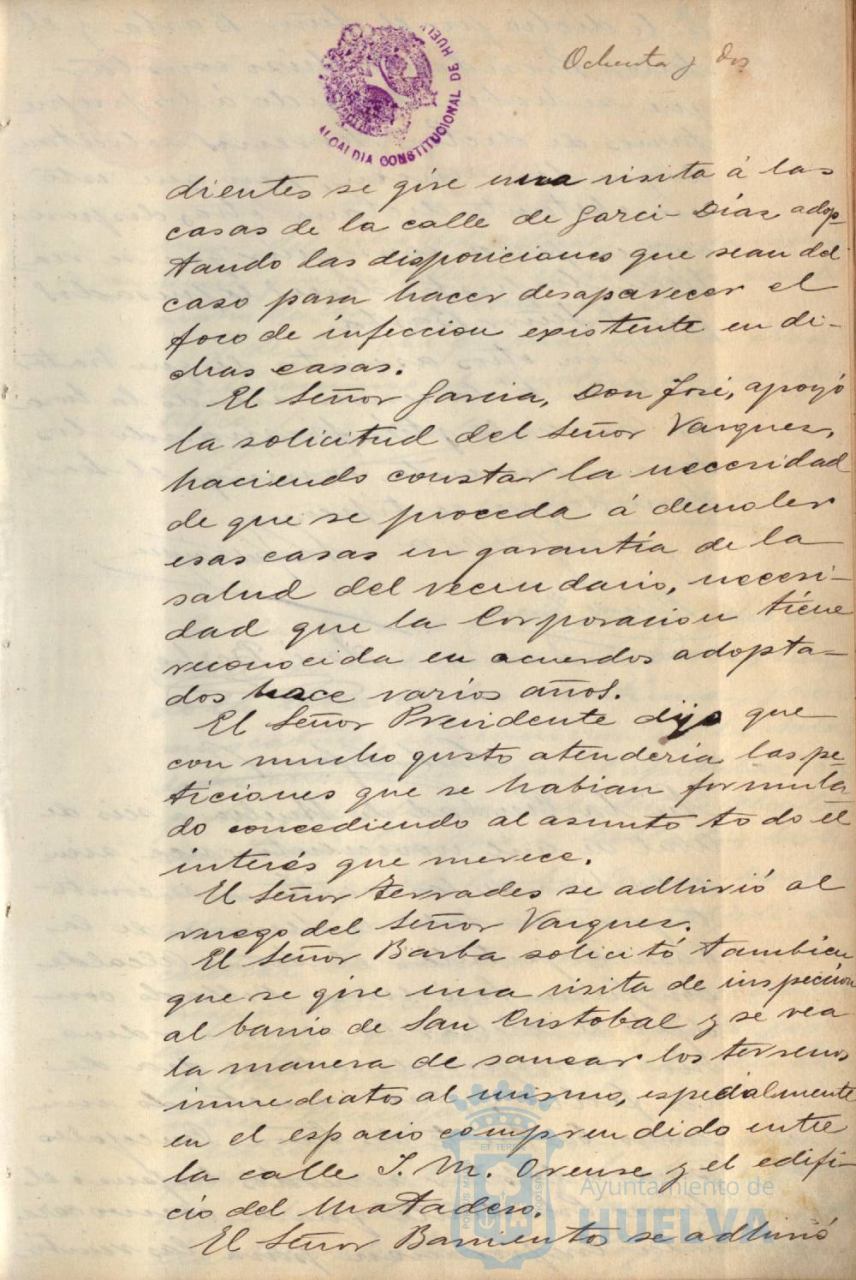 Ochenta y dos
ALCALDIA CONSTITUCIONAL DE HUEL
dientes se gire una visita á las
casas de la calle de Garci-Díaz adop-
tando las disposiciones que sean del
caso para hacer desaparecer el
foco de infeccion existente en di-
chas casas.
El Señor Garcia, Don José, apoyó
la solicitud del Señor Vazquez,
haciendo constar la necesidad
de que se proceda á demoler
esas casas en garantía de la
salud del vecindario, necesi-
dad que la Corporacion tiene
reconocida en acuerdos adopta-
dos hace varios años.
El Señor Presidente dijo que
con mucho gusto atenderia las pe-
ticiones que se habian formula-
do concediendo al asunto todo el
interés que merece.
El Señor Terrades se adhirió al
ruego del Señor Vazquez.
El Señor Barba solicitó tambien
que se gire una visita de inspeccion
al barrio de San Cristobal y se vea
la manera de sanear los terrenos
inmediatos al mismo, especialmente
en el espacio comprendido entre
la calle J. M. Orense y el edifi-
cio del Matadero.
El Señor Barrientos se adhirió
Ayuntamiento de
HUELVA